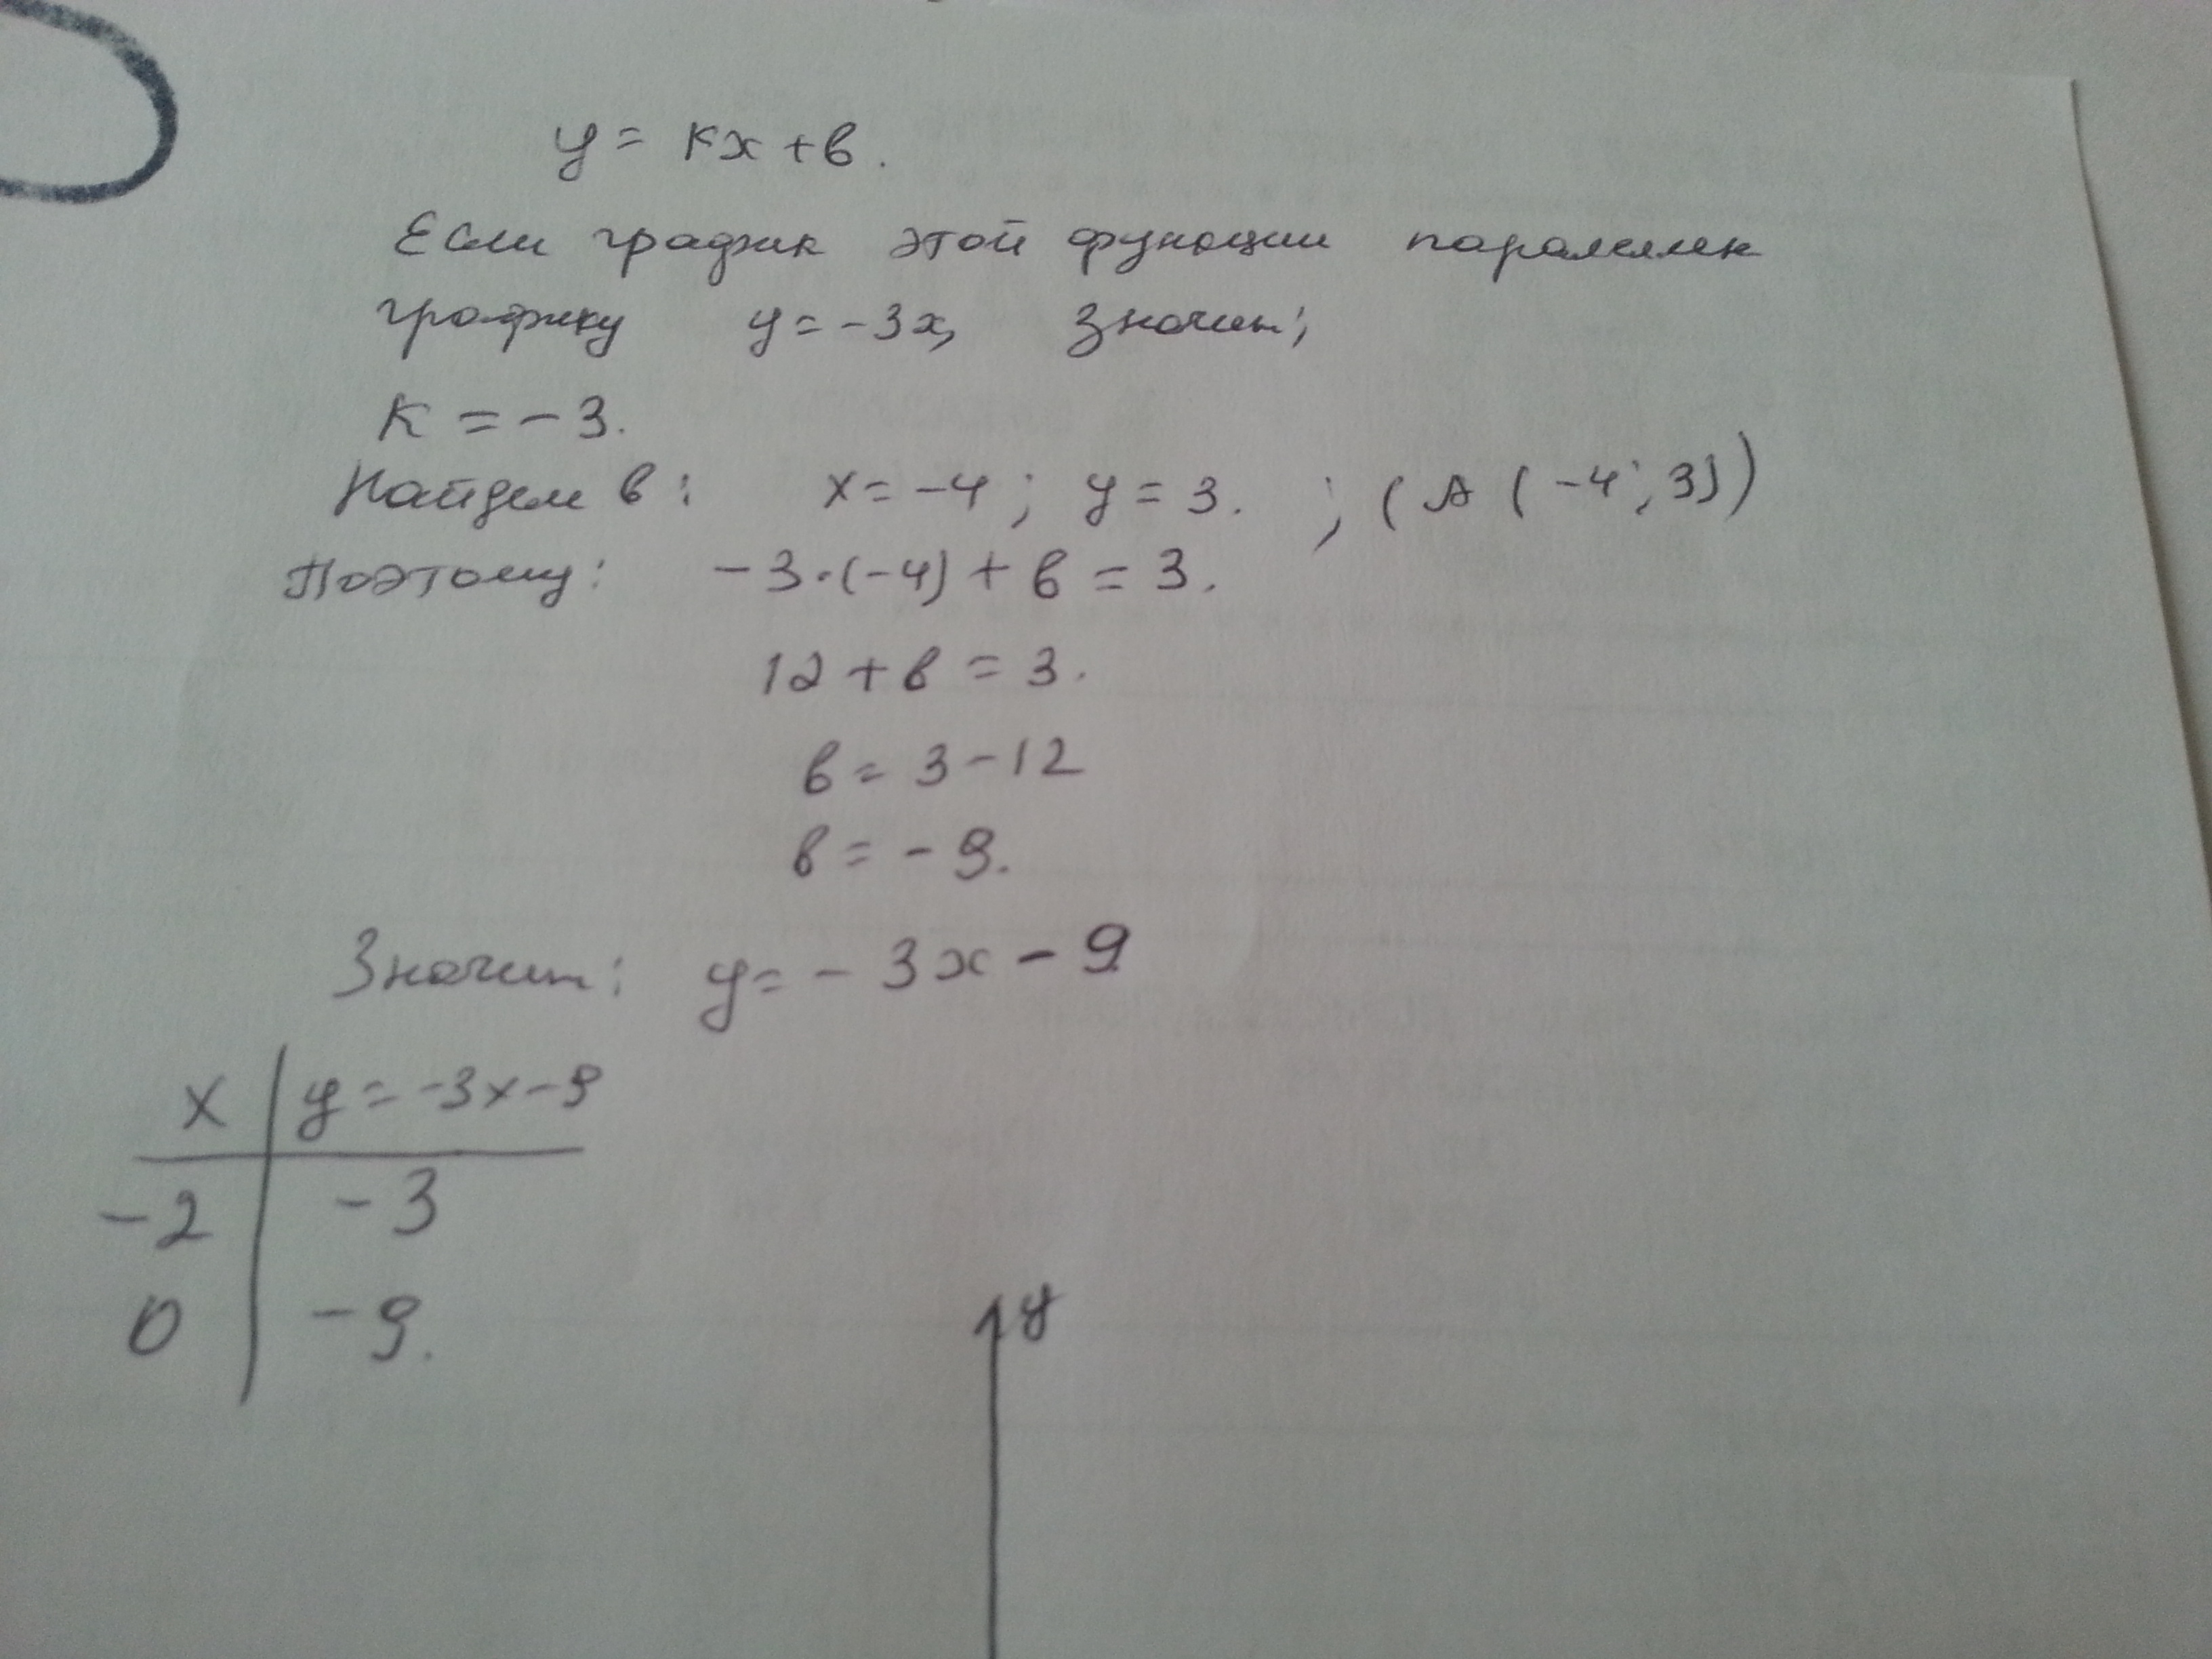 y = kx + в.
Если график этой функции параллелен
графику y = -3x, значит;
K = -3.
Найдем в: x = -4; y = 3. ; (A (-4; 3))
Поэтому: -3·(-4) + в = 3.
12 + в = 3.
в = 3 - 12
в = -9.
Значит: y = -3x - 9
x | y = -3x - 9
-2 | -3
0 | -9.
y